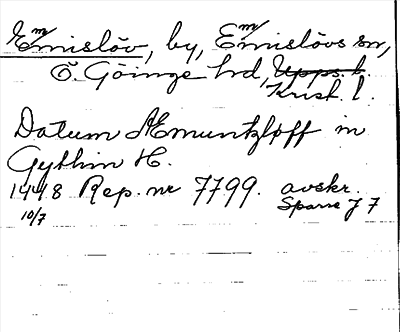 Emislöv, by, Emislövs sn,
Ö. Göinge hd, Upps. l.
Krist. l.
Datum Æmuntzløff in
Gythin H.
1448 Rep. nr 7799. avskr.
10/7 Sparre J 7